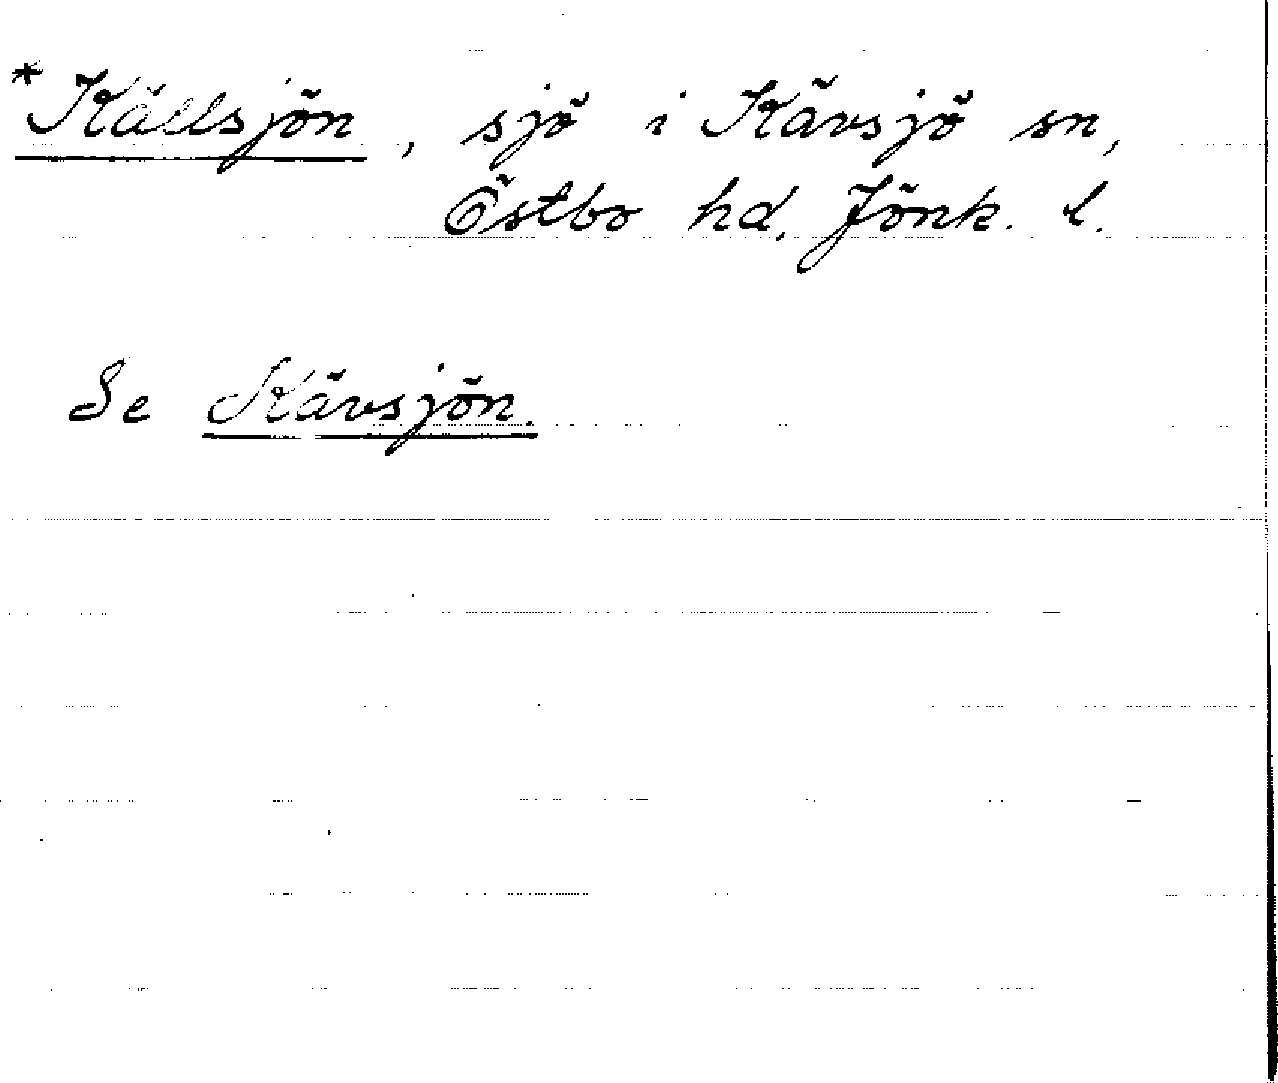 *Källsjön, sjö i Kävsjö sn,
Östbo hd, Jönk. l.
Se Kävsjön.